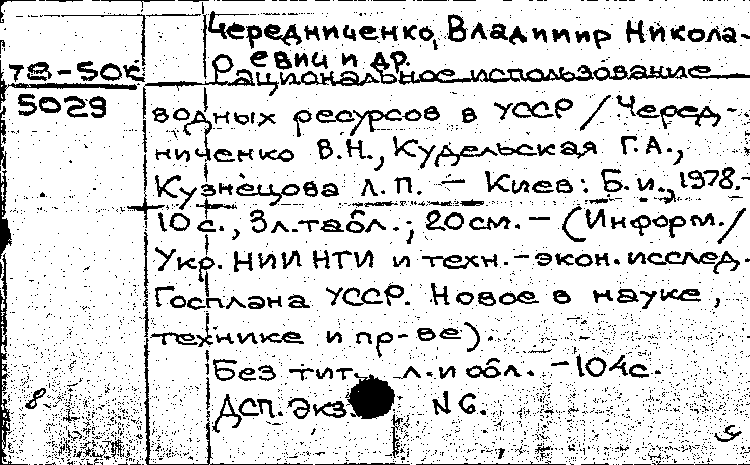 Чередниченко, Владимир Никола-
евич и др.
78-50к
Рациональное использование
5029
водных ресурсов в УССР / Черед-
ниченко В.Н., Кудельская Г.А.,
Кузнецова Л.П. — Киев: Б.и., 1978.-
10 с., 3 л. табл.; 20 см. — (Информ. /
Укр. НИИ НТИ и техн.-экон. исслед.
Госплана УССР. Новое в науке,
технике и пр-ве).
Без тит. л. и обл. — 104с.
8.
ДСП. Экз. N 6.